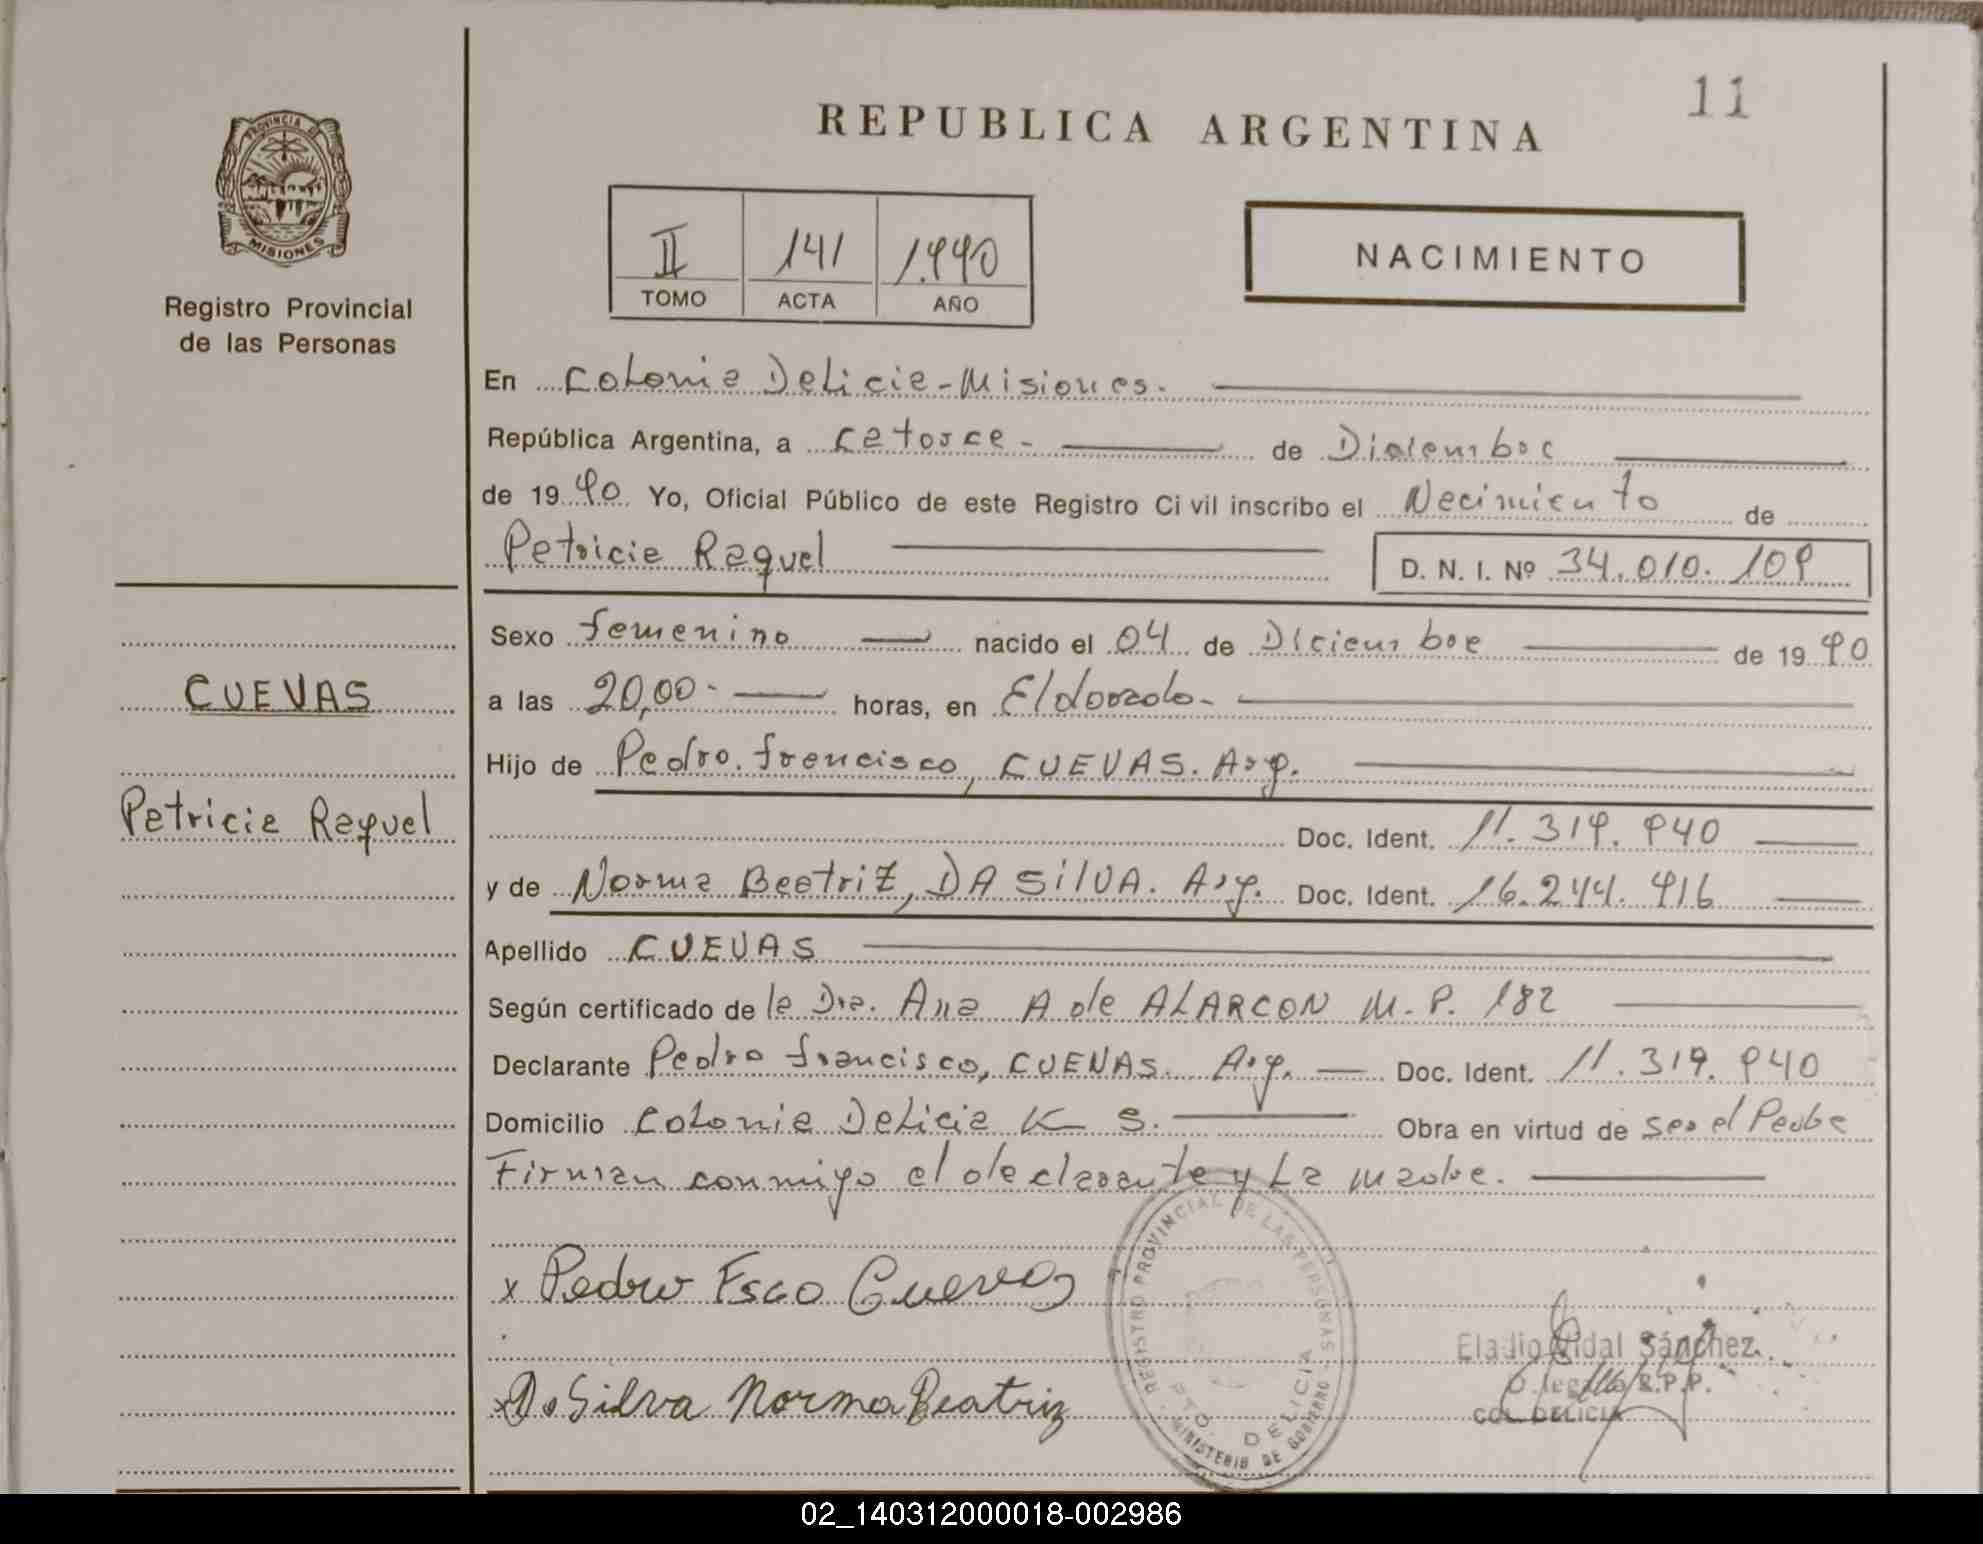 11
REPUBLICA ARGENTINA
PROVINCIA DE
MISIONES
Registro Provincial
de las Personas
II 141 1.990
TOMO ACTA AÑO
NACIMIENTO
En Colonia Delicia - Misiones.
República Argentina, a catorce - de Diciembre
de 1990 Yo, Oficial Público de este Registro Civil inscribo el Nacimiento de
Patricia Raquel D. N. I. Nº 34.010.109
Sexo femenino nacido el 04 de Diciembre de 1990
a las 20,00- horas, en Eldorado-
Hijo de Pedro Francisco, CUEVAS. Arg.
Doc. Ident. 11.319.940
y de Norma Beatriz, DA SilVA. Arg. Doc. Ident. 16.244.916
Apellido CUEVAS
Según certificado de la Dra. Ana A de ALARCON M.P. 182
Declarante Pedro Francisco, CUEVAS. Arg. Doc. Ident. 11.319.940
Domicilio Colonia Delicia K S. Obra en virtud de ser el Padre
Firman conmigo el declarante y La madre.
CUEVAS
Patricia Raquel
x Pedro Fsco Cuevas
x D. Silva Norma Beatriz
REGISTRO PROVINCIAL DE LAS PERSONAS
PTO. DELICIA
MINISTERIO DE GOBIERNO
Eladio Vidal Sánchez
Delegado R.P.P.
COL. DELICIA
02_140312000018-002986